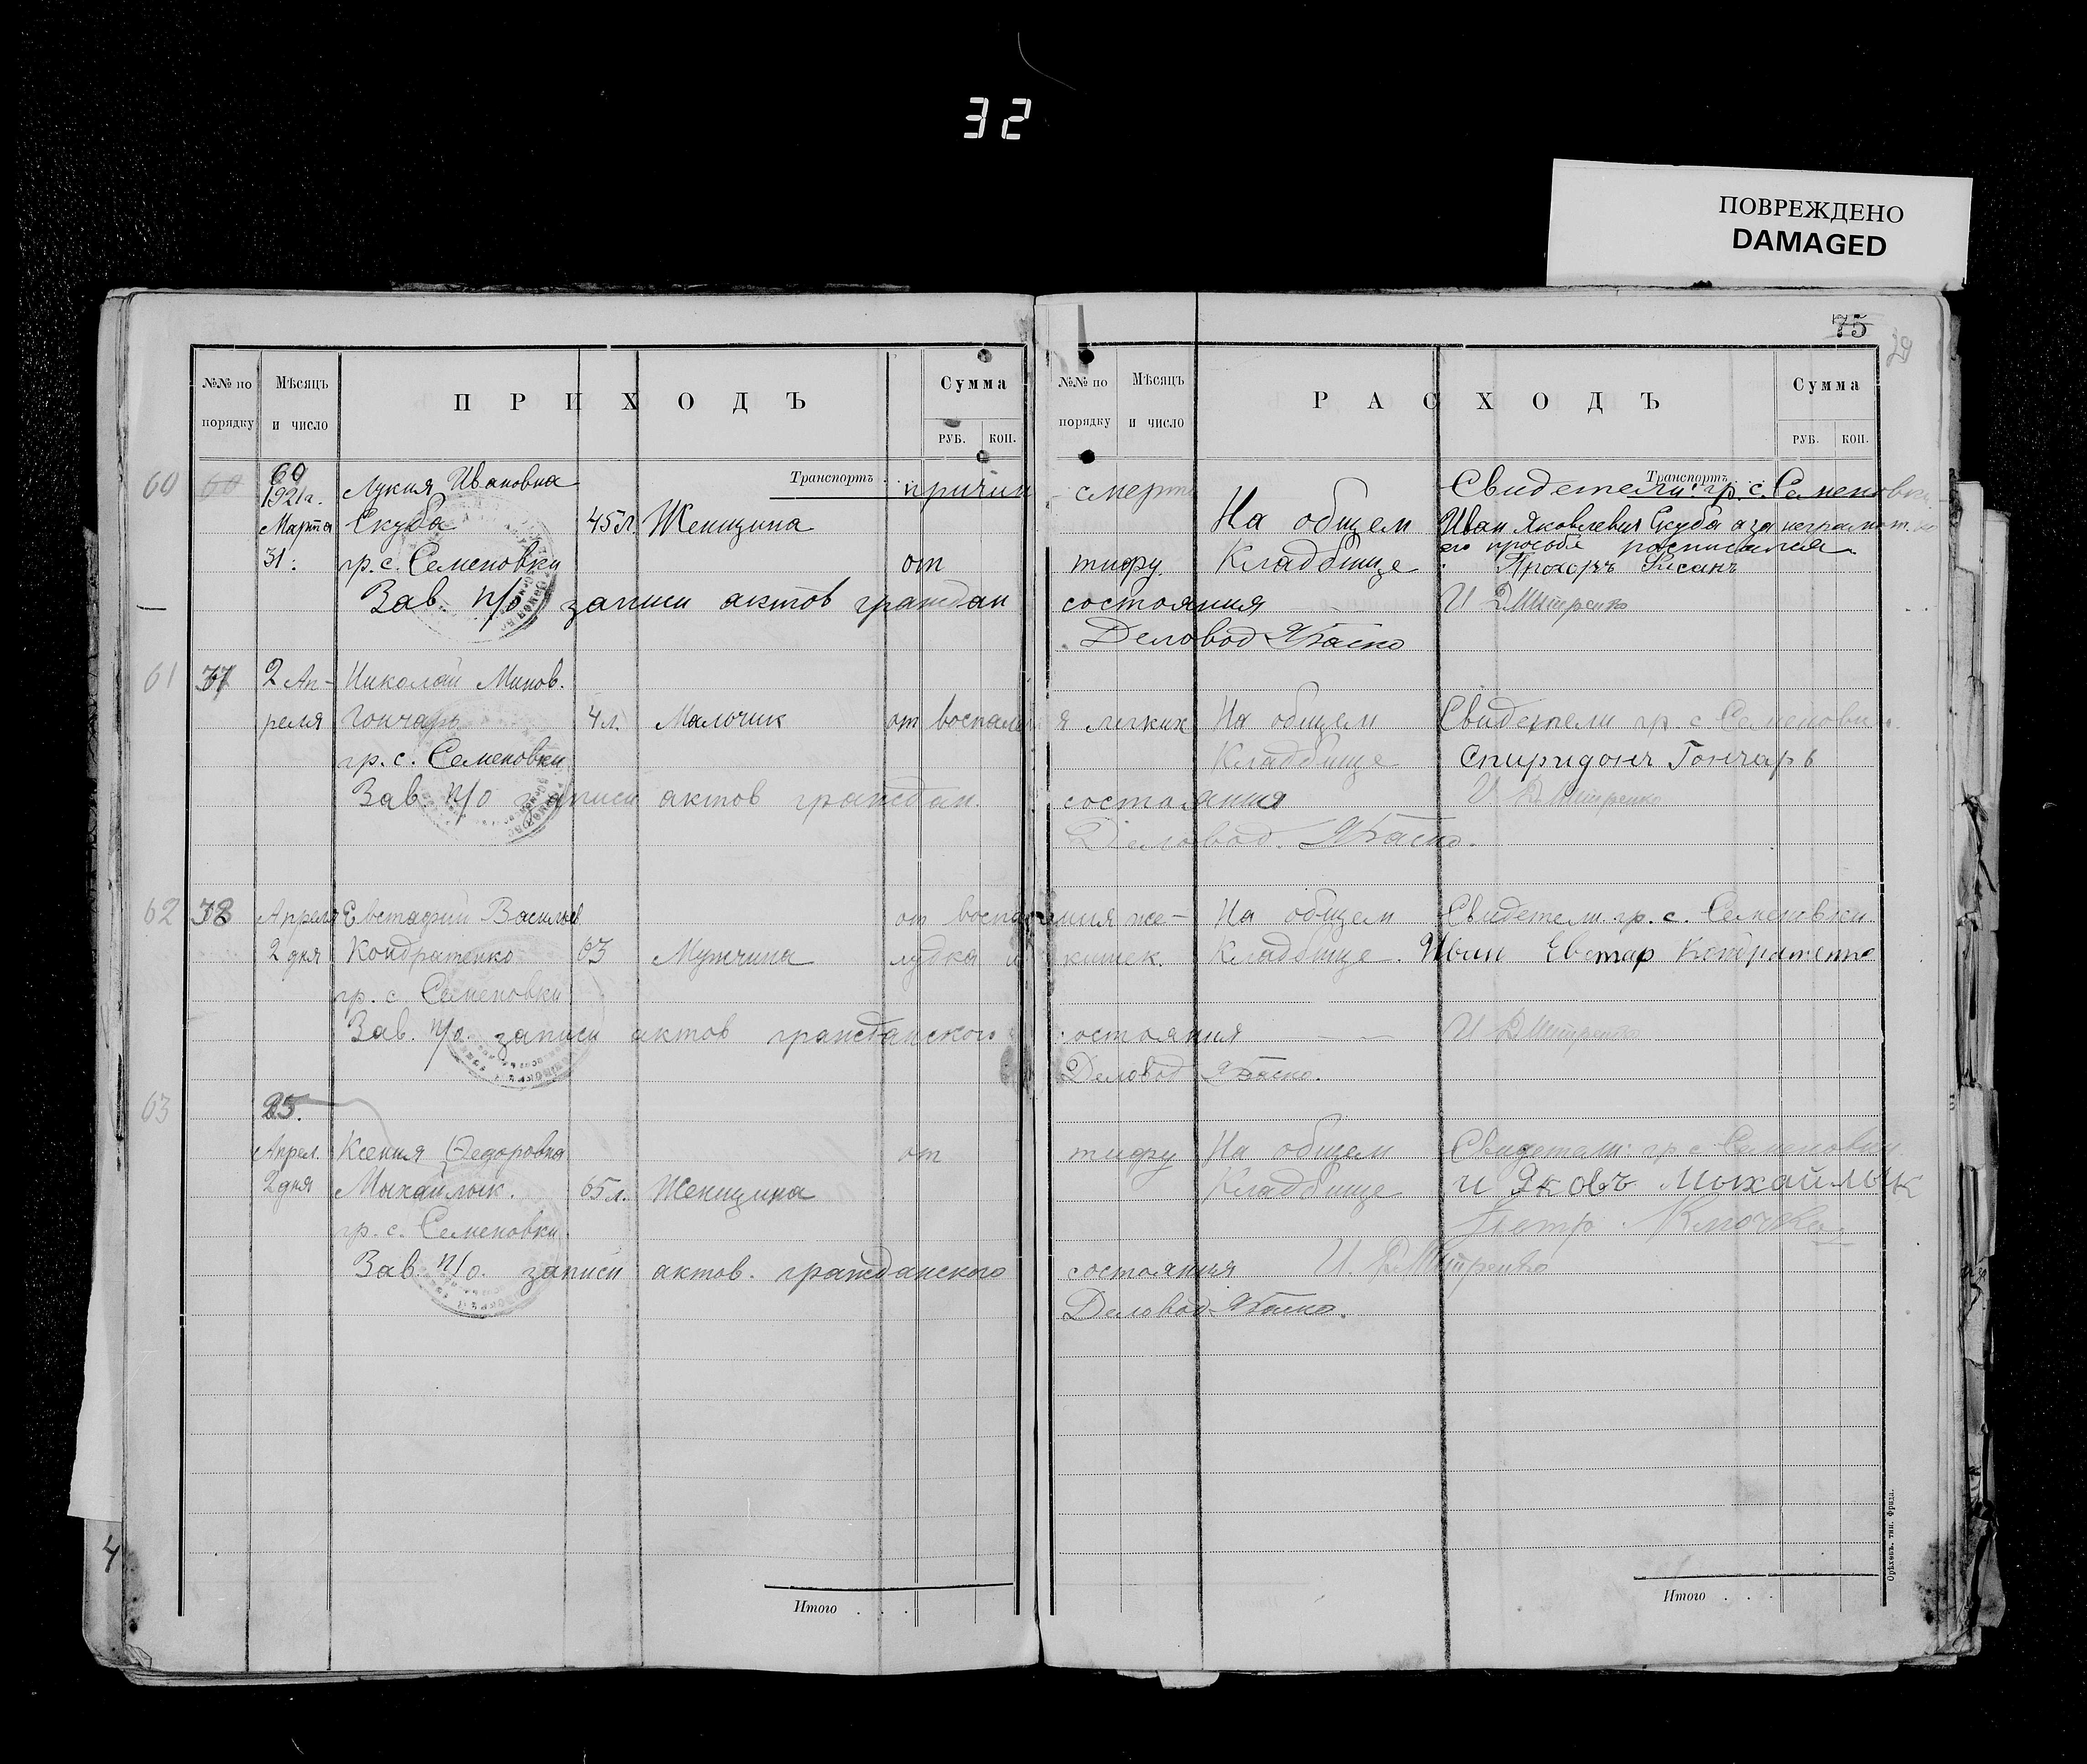 32
ПОВРЕЖДЕНО
DAMAGED
75
29
№№ по порядку Мѣсяцъ и число ПРИХОДЪ Сумма РУБ. КОП.
№№ по порядку Мѣсяцъ и число РАСХОДЪ Сумма РУБ. КОП.
Транспортъ . . Транспортъ
60 60 60 Лукия Ивановна причин смерти Свидетели: гр. с. Семеновки
1921 г.
Марта Скуба 45 л. Женщина На общем Иван Яковлевич Скуба а за неграмот.
его просьбе расписался
31. гр. с. Семеновки от тифу. Кладбище Прохоръ
Зав. п/о записи актов граждан состояния И Дмитренко
Деловод ЯБаско
61 37 2 Ап- Николай Минов.
реля Гончарь 4 л. Мальчик от воспален я легких На общем Свидетели гр. с Семеновки
гр. с. Семеновки Кладбище Спиридонъ Гончарь
Зав. п/о записи актов граждан. состояния И Дмитренко
Деловод. ЯБаско.
62 38 Апреля Евстафий Васильев от воспаления же- На общем Свидетели гр. с. Семеновки
2 дня Кондратенко 63 Мужчина лудка и кишек. Кладбище. Иван Евстар Кондратенко
гр. с. Семеновки
Зав. п/о. записи актов гражданского состояния И Дмитренко
Деловод ЯБаско.
63 25.
Апрел. Ксения Федоровна от тифу На общем Свидетели: гр с Семеновки
2 дня Мыхайлык. 65 л. Женщина Кладбище и Яковъ Мыхайлык
гр. с. Семеновки. Петро Клочко
Зав. п/о. записи актов. гражданского состояния И. Дмитренко
Деловод ЯБаско.
4
Итого . . . Итого . . .
Орѣховъ. тип. Фрида.